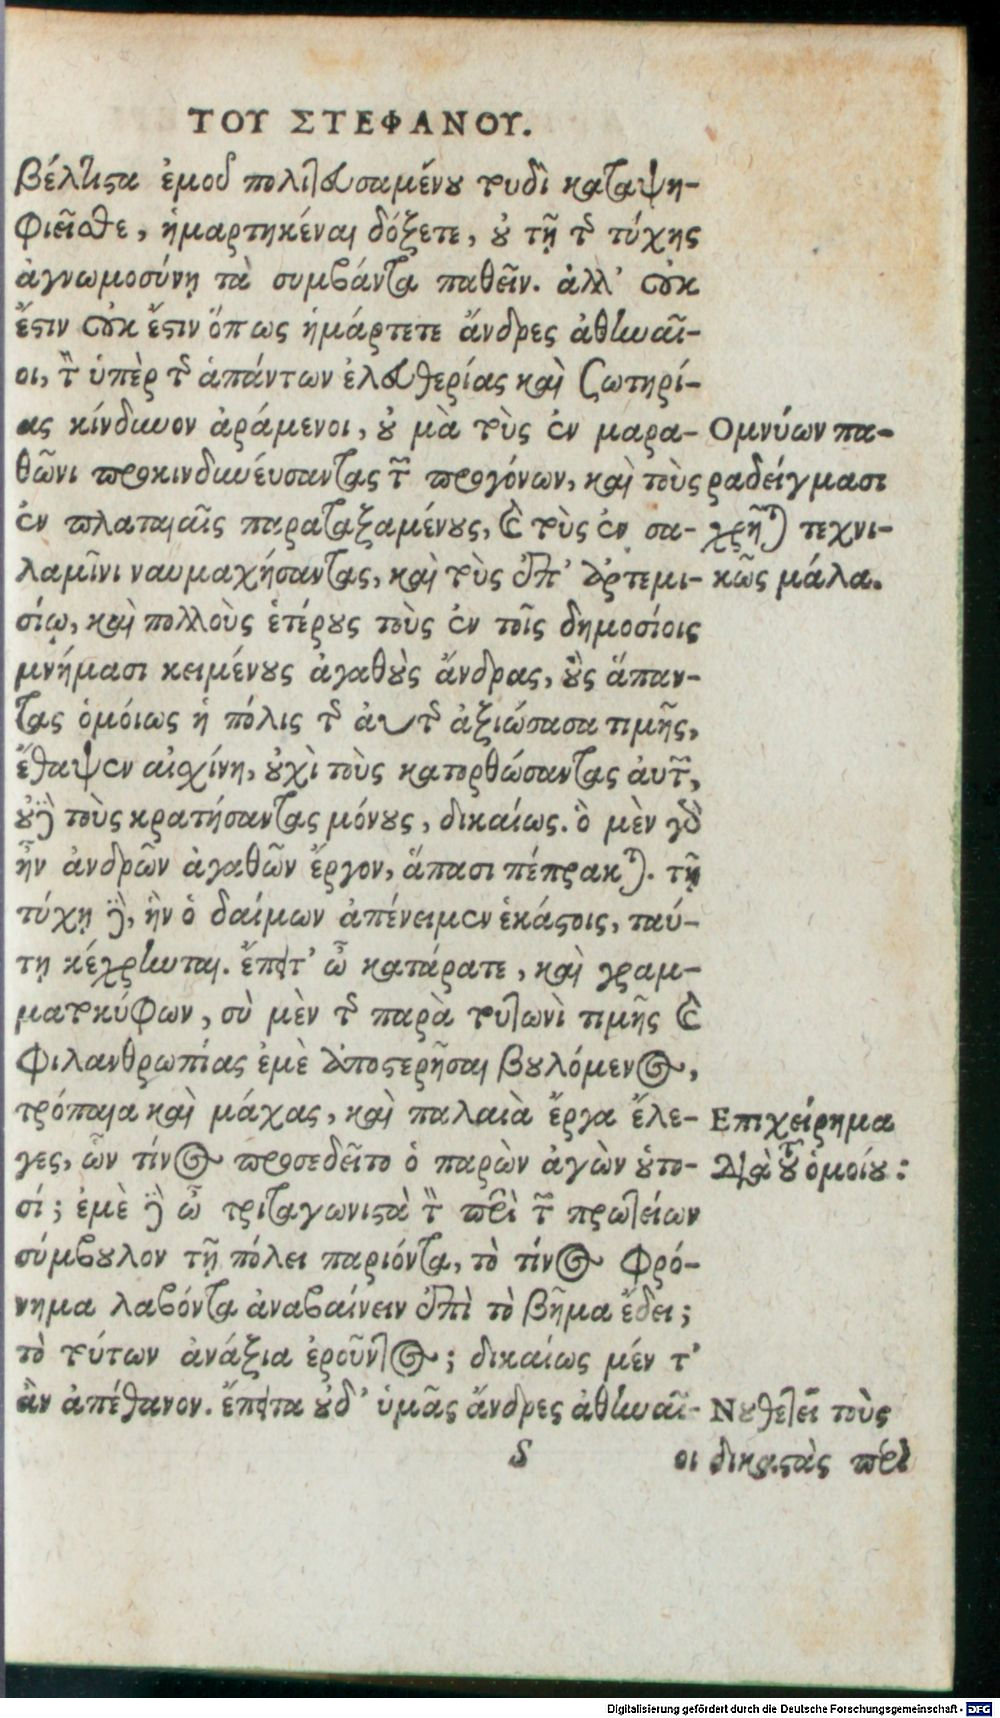 ΤΟΥ ΣΤΕΦΑΝΟΥ.
βέλτιστα ἐμοῦ πολιτευσαμένου τουδὶ καταψη-
φιεῖσθε, ἡμαρτηκέναι δόξετε, οὐ τῇ τῆς τύχης
ἀγνωμοσύνῃ τὰ συμβάντα παθεῖν. ἀλλ' οὐκ
ἔστιν οὐκ ἔστιν ὅπως ἡμάρτετε ἄνδρες ἀθηναῖ-
οι, τὸν ὑπὲρ τῆς ἁπάντων ἐλευθερίας καὶ σωτηρί-
ας κίνδυνον ἀράμενοι, οὐ μὰ τοὺς ἐν μαρα-
θῶνι προκινδυνεύσαντας τῶν προγόνων, καὶ τοὺς
ἐν πλαταιαῖς παραταξαμένους, καὶ τοὺς ἐν σα-
λαμῖνι ναυμαχήσαντας, καὶ τοὺς ἐπ' ἀρτεμι-
σίῳ, καὶ πολλοὺς ἑτέρους τοὺς ἐν τοῖς δημοσίοις
μνήμασι κειμένους ἀγαθοὺς ἄνδρας, οὓς ἅπαν-
τας ὁμοίως ἡ πόλις τῆς αὐτῆς ἀξιώσασα τιμῆς,
ἔθαψεν αἰσχίνη, οὐχὶ τοὺς κατορθώσαντας αὐτῶν,
οὐδὲ τοὺς κρατήσαντας μόνους, δικαίως. ὃ μὲν γὰρ
ἦν ἀνδρῶν ἀγαθῶν ἔργον, ἅπασι πέπρακται. τῇ
τύχῃ δὲ, ἣν ὁ δαίμων ἀπένειμεν ἑκάστοις, ταύ-
τῃ κέχρηνται. ἔπειτ' ὦ κατάρατε, καὶ γραμ-
ματοκύφων, σὺ μὲν τῆς παρὰ τουτωνὶ τιμῆς καὶ
φιλανθρωπίας ἐμὲ ἀποστερῆσαι βουλόμενος,
τρόπαια καὶ μάχας, καὶ παλαιὰ ἔργα ἔλε-
γες, ὧν τίνος προσεδεῖτο ὁ παρὼν ἀγὼν οὑτο-
σί; ἐμὲ δὲ ὦ τριταγωνιστὰ τὸν περὶ τῶν πρωτείων
σύμβουλον τῇ πόλει παριόντα, τὸ τίνος φρό-
νημα λαβόντα ἀναβαίνειν ἐπὶ τὸ βῆμα ἔδει;
τὸ τούτων ἀνάξια ἐροῦντος; δικαίως μέν τ'
ἂν ἀπέθανον. ἔπειτα οὐδ' ὑμᾶς ἄνδρες ἀθηναῖ-
δ οι
Ομνύων πα-
ραδείγμασι
χρῆται τεχνι-
κῶς μάλα.
Επιχείρημα
διὰ τοῦ ὁμοίου:
Νουθετεῖ τοὺς
δικαστὰς περὶ
Digitalisierung gefördert durch die Deutsche Forschungsgemeinschaft - DFG